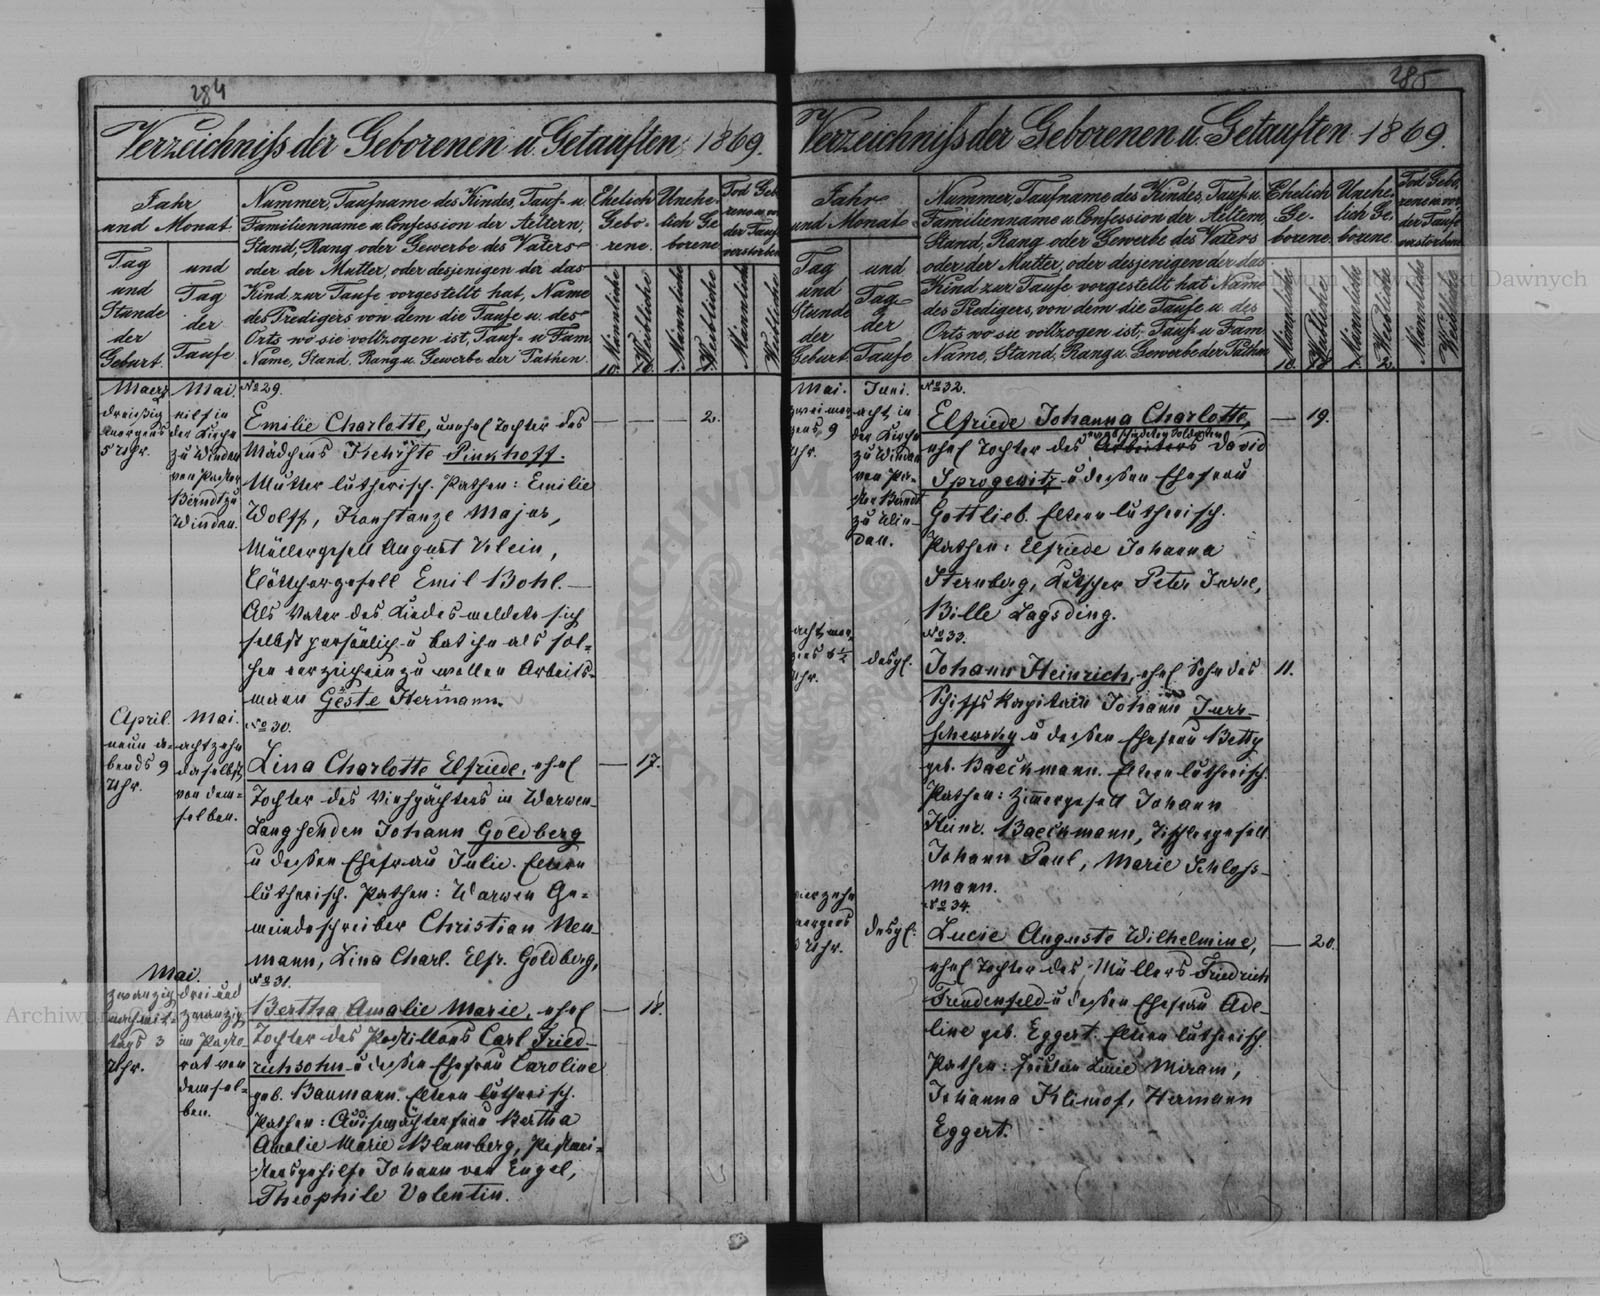 284
Verzeichniß der Geborenen u. Getauften 1869.
Jahr
und Monat
Tag
und
Stunde
der
Geburt.
und
Tag
der
Taufe
Nummer, Taufname des Kindes, Tauf- u.
Familienname u. Confession der Aeltern,
Stand, Rang oder Gewerbe des Vaters
oder der Mutter, oder desjenigen der das
Kind zur Taufe vorgestellt hat, Name
des Predigers von dem die Taufe u. des
Orts wo sie vollzogen ist, Tauf- u Fam.
Name, Stand, Rang u. Gewerbe der Pathen.
Ehelich
Gebo-
rene.
Unehe-
lich Ge
borene
Tod Geb
rene u. vor
der Taufe
verstorben
Männliche
Weibliche
Männliche
Weibliche
Männliche
Weibliche
Maerz
dreißig
morgens
5 Uhr.
Mai.
elf in
der Kirche
zu Windau
von Pastor
Berndt zu
Windau.
No 29.
Emilie Charlotte, unehel Tochter des — — — 2.
Mädchens Pinkhoff.
Mutter lutherisch. Pathen: Emilie
Wolff, Konstanze Major,
Müllergesell August Klein,
Böttchergesell Emil Bohl. —
Als Vater des Kindes meldete sich
selbst persönlich u bat ihn als sol-
chen verzeichnen zu wollen Arbeits-
mann Geste Hermann.
April.
neun a-
bends 9
Uhr.
Mai.
achtzehn
daselbst
von dem-
selben.
No 30.
Lina Charlotte Elfriede, ehel — 17.
Tochter des Viehpächters in Warwen-
Langsehden Johann Goldberg
u dessen Ehefrau Julie. Eltern
lutherisch. Pathen: Warwen Ge-
meindeschreiber Christian Neu-
mann, Lina Charl. Elfr. Goldberg,
Mai.
zwanzig
nachmit-
tags 3
Uhr.
drei und
zwanzig
im Pasto-
rat von
demsel-
ben.
No 31.
Bertha Amalie Marie, ehel — 18.
Tochter des Postillons Carl Fried-
richsohn u dessen Ehefrau Caroline
geb. Baumann. Eltern lutherisch.
Pathen: Bertha
Amalie Marie Blumberg,
Johann von Engel,
Theophile Valentin.
285
Verzeichniß der Geborenen u. Getauften 1869.
Jahr
und Monat
Tag
und
Stunde
der
Geburt
und
Tag
der
Taufe
Nummer, Taufname des Kindes, Tauf- u.
Familienname u. Confession der Aeltern
Stand, Rang oder Gewerbe des Vaters
oder der Mutter, oder desjenigen der das
Kind zur Taufe vorgestellt hat Name
des Predigers, von dem die Taufe u. des
Orts wo sie vollzogen ist, Tauf- u. Fam
Name, Stand, Rang u. Gewerbe der Pathen
Ehelich
Ge-
borene.
Unehe-
lich Ge.
borene
Tod Gebo.
rene u. vor
der Taufe
verstorbene
Männliche
Weibliche
Männliche
Weibliche
Männliche
Weibliche
Mai.
zwei mor
gens 9
Uhr.
Juni.
acht in
der Kirche
zu Windau
von Pa-
stor Berndt
zu Win-
dau.
No 32.
Elfriede Johanna Charlotte, — 19.
verabschiedeten Soldaten
ehel Tochter des Arbeiters David
Sprogewitz u dessen Ehefrau
Gottlieb. Eltern lutherisch.
Pathen: Elfriede Johanna
Sternberg, Kutscher Peter
Bille Lagsding.
acht mor
gens 6 1/2
Uhr.
desgl.
No 33.
Johann Heinrich, ehel Sohn des 11.
Schiffs Kapitain Johann Jurr-
schewsky u dessen Ehefrau Betty
geb. Baeckmann. Eltern lutherisch.
Pathen: Zimmergesell Johann
Heinr. Baeckmann, Tischlergesell
Johann Paul, Marie Schloss-
mann.
vierzehn
morgens
Uhr.
desgl.
No 34.
Lucie Auguste Wilhelmine, — 20.
ehel Tochter des Müllers Friedrich
Freudenfeld u dessen Ehefrau Ade-
line geb. Eggert. Eltern lutherisch.
Pathen: Miram,
Johanna Klimof, Hermann
Eggert.
Archiwum Główne Akt Dawnych